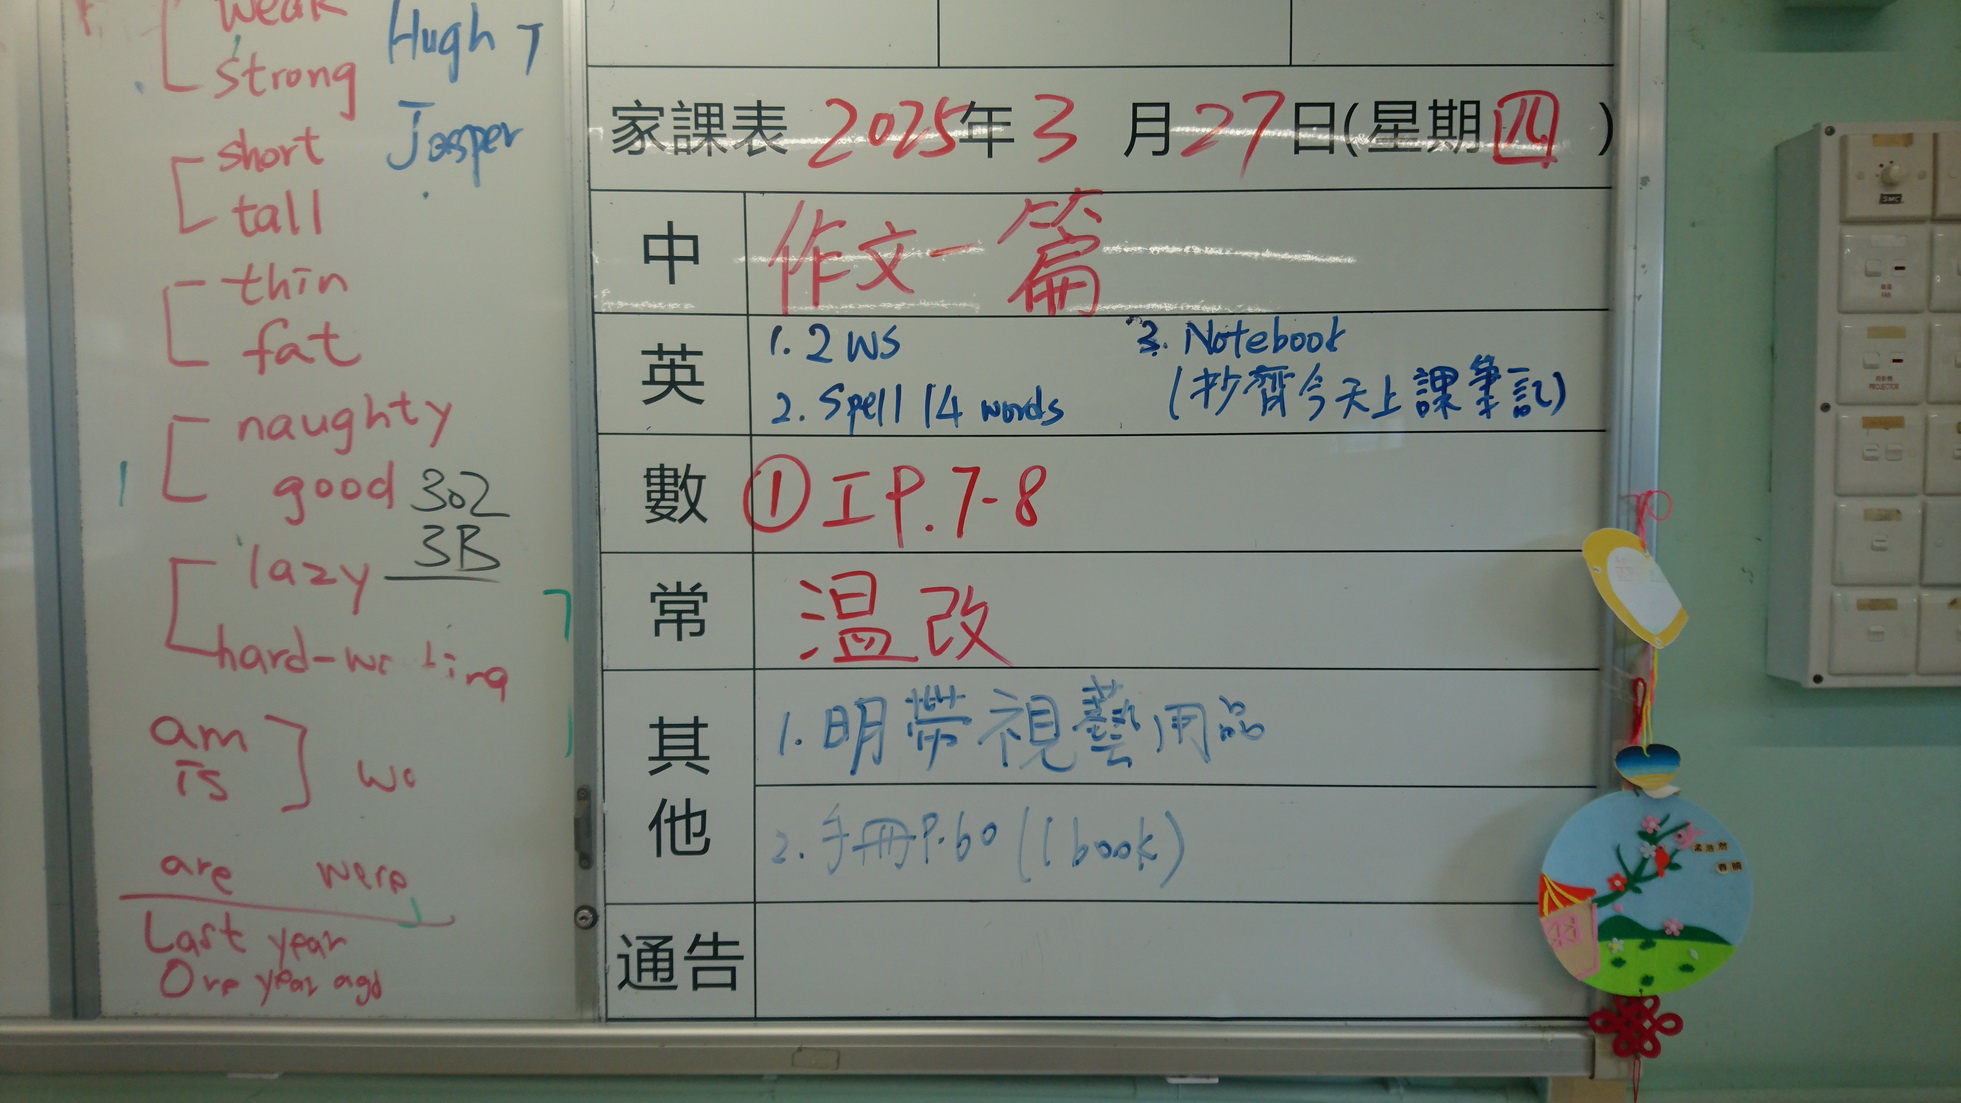 weak
strong
Hugh 7
Jasper
short
tall
thin
fat
naughty
good
302
3B
lazy
am
is
are
were
Last year
One year ago
家課表 2025年3月27日(星期四)
中 作文一篇
英
1. 2 WS
2. Spell 14 words
3. Notebook
(抄齊今天上課筆記)
數 ① 工 P.7-8
常 温改
其他
1. 明帶視藝用品
2. 手冊P.60 (1 book)
通告